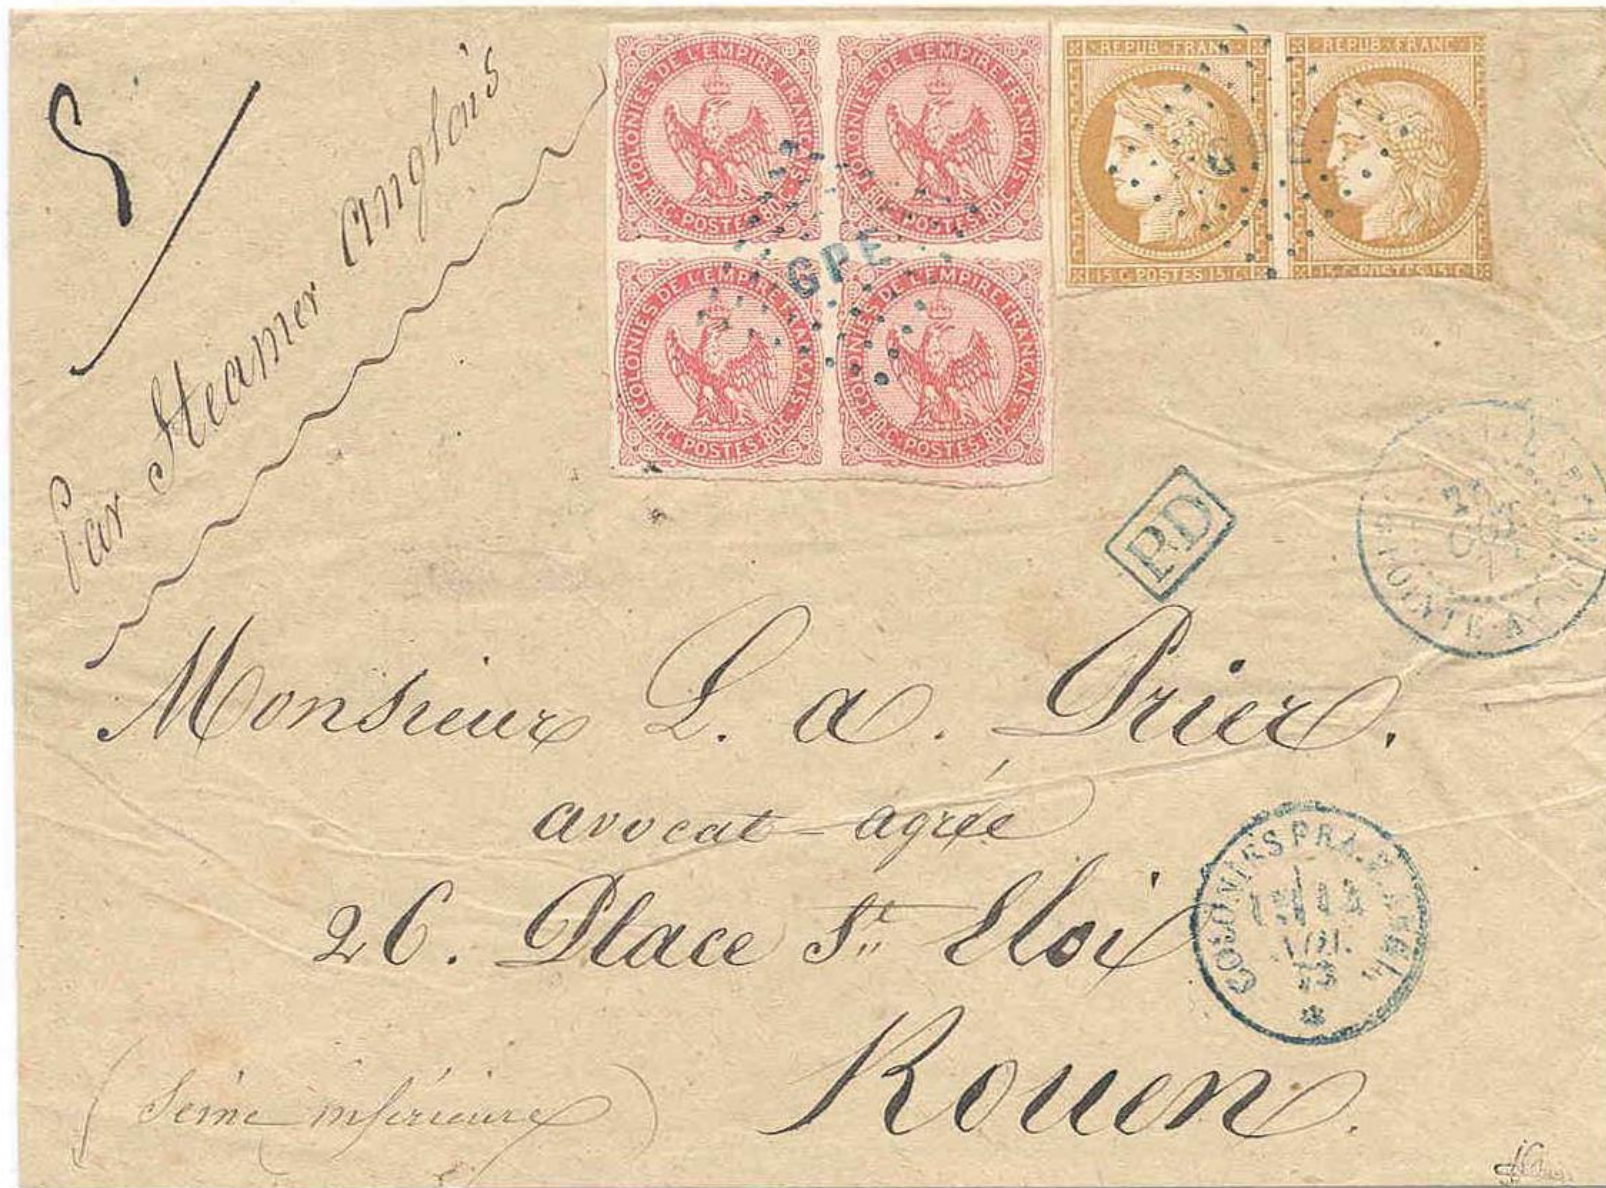 5
Par Steamer Anglais
COLONIES DE L'EMPIRE FRANÇAIS
80.C. POSTES 80.C.
COLONIES DE L'EMPIRE FRANÇAIS
80.C. POSTES 80.C.
COLONIES DE L'EMPIRE FRANÇAIS
80.C. POSTES 80.C.
COLONIES DE L'EMPIRE FRANÇAIS
80.C. POSTES 80.C.
GPE
REPUB. FRANC.
15 C. POSTES 15 C.
REPUB. FRANC.
15 C. POSTES 15 C.
P.D
POINTE-A
Monsieur L. a. Prier.
avocat-agréé
26. Place St. Eloi
COLONIES FRA.
JUIL.
73
Rouen.
(Seine inférieure)